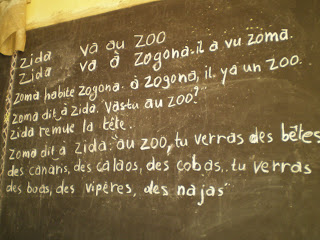 zida va au zoo
zida va à zogona. il a vu zoma.
zoma habite zogona. à zogona, il ya un zoo.
zoma dit à zida. vastu au zoo?
zida remue la tête.
zoma dit à zida: au zoo, tu verras des bêtes
des canars, des calaos, des cobas.. tu verras
des boas, des vipères, des najas